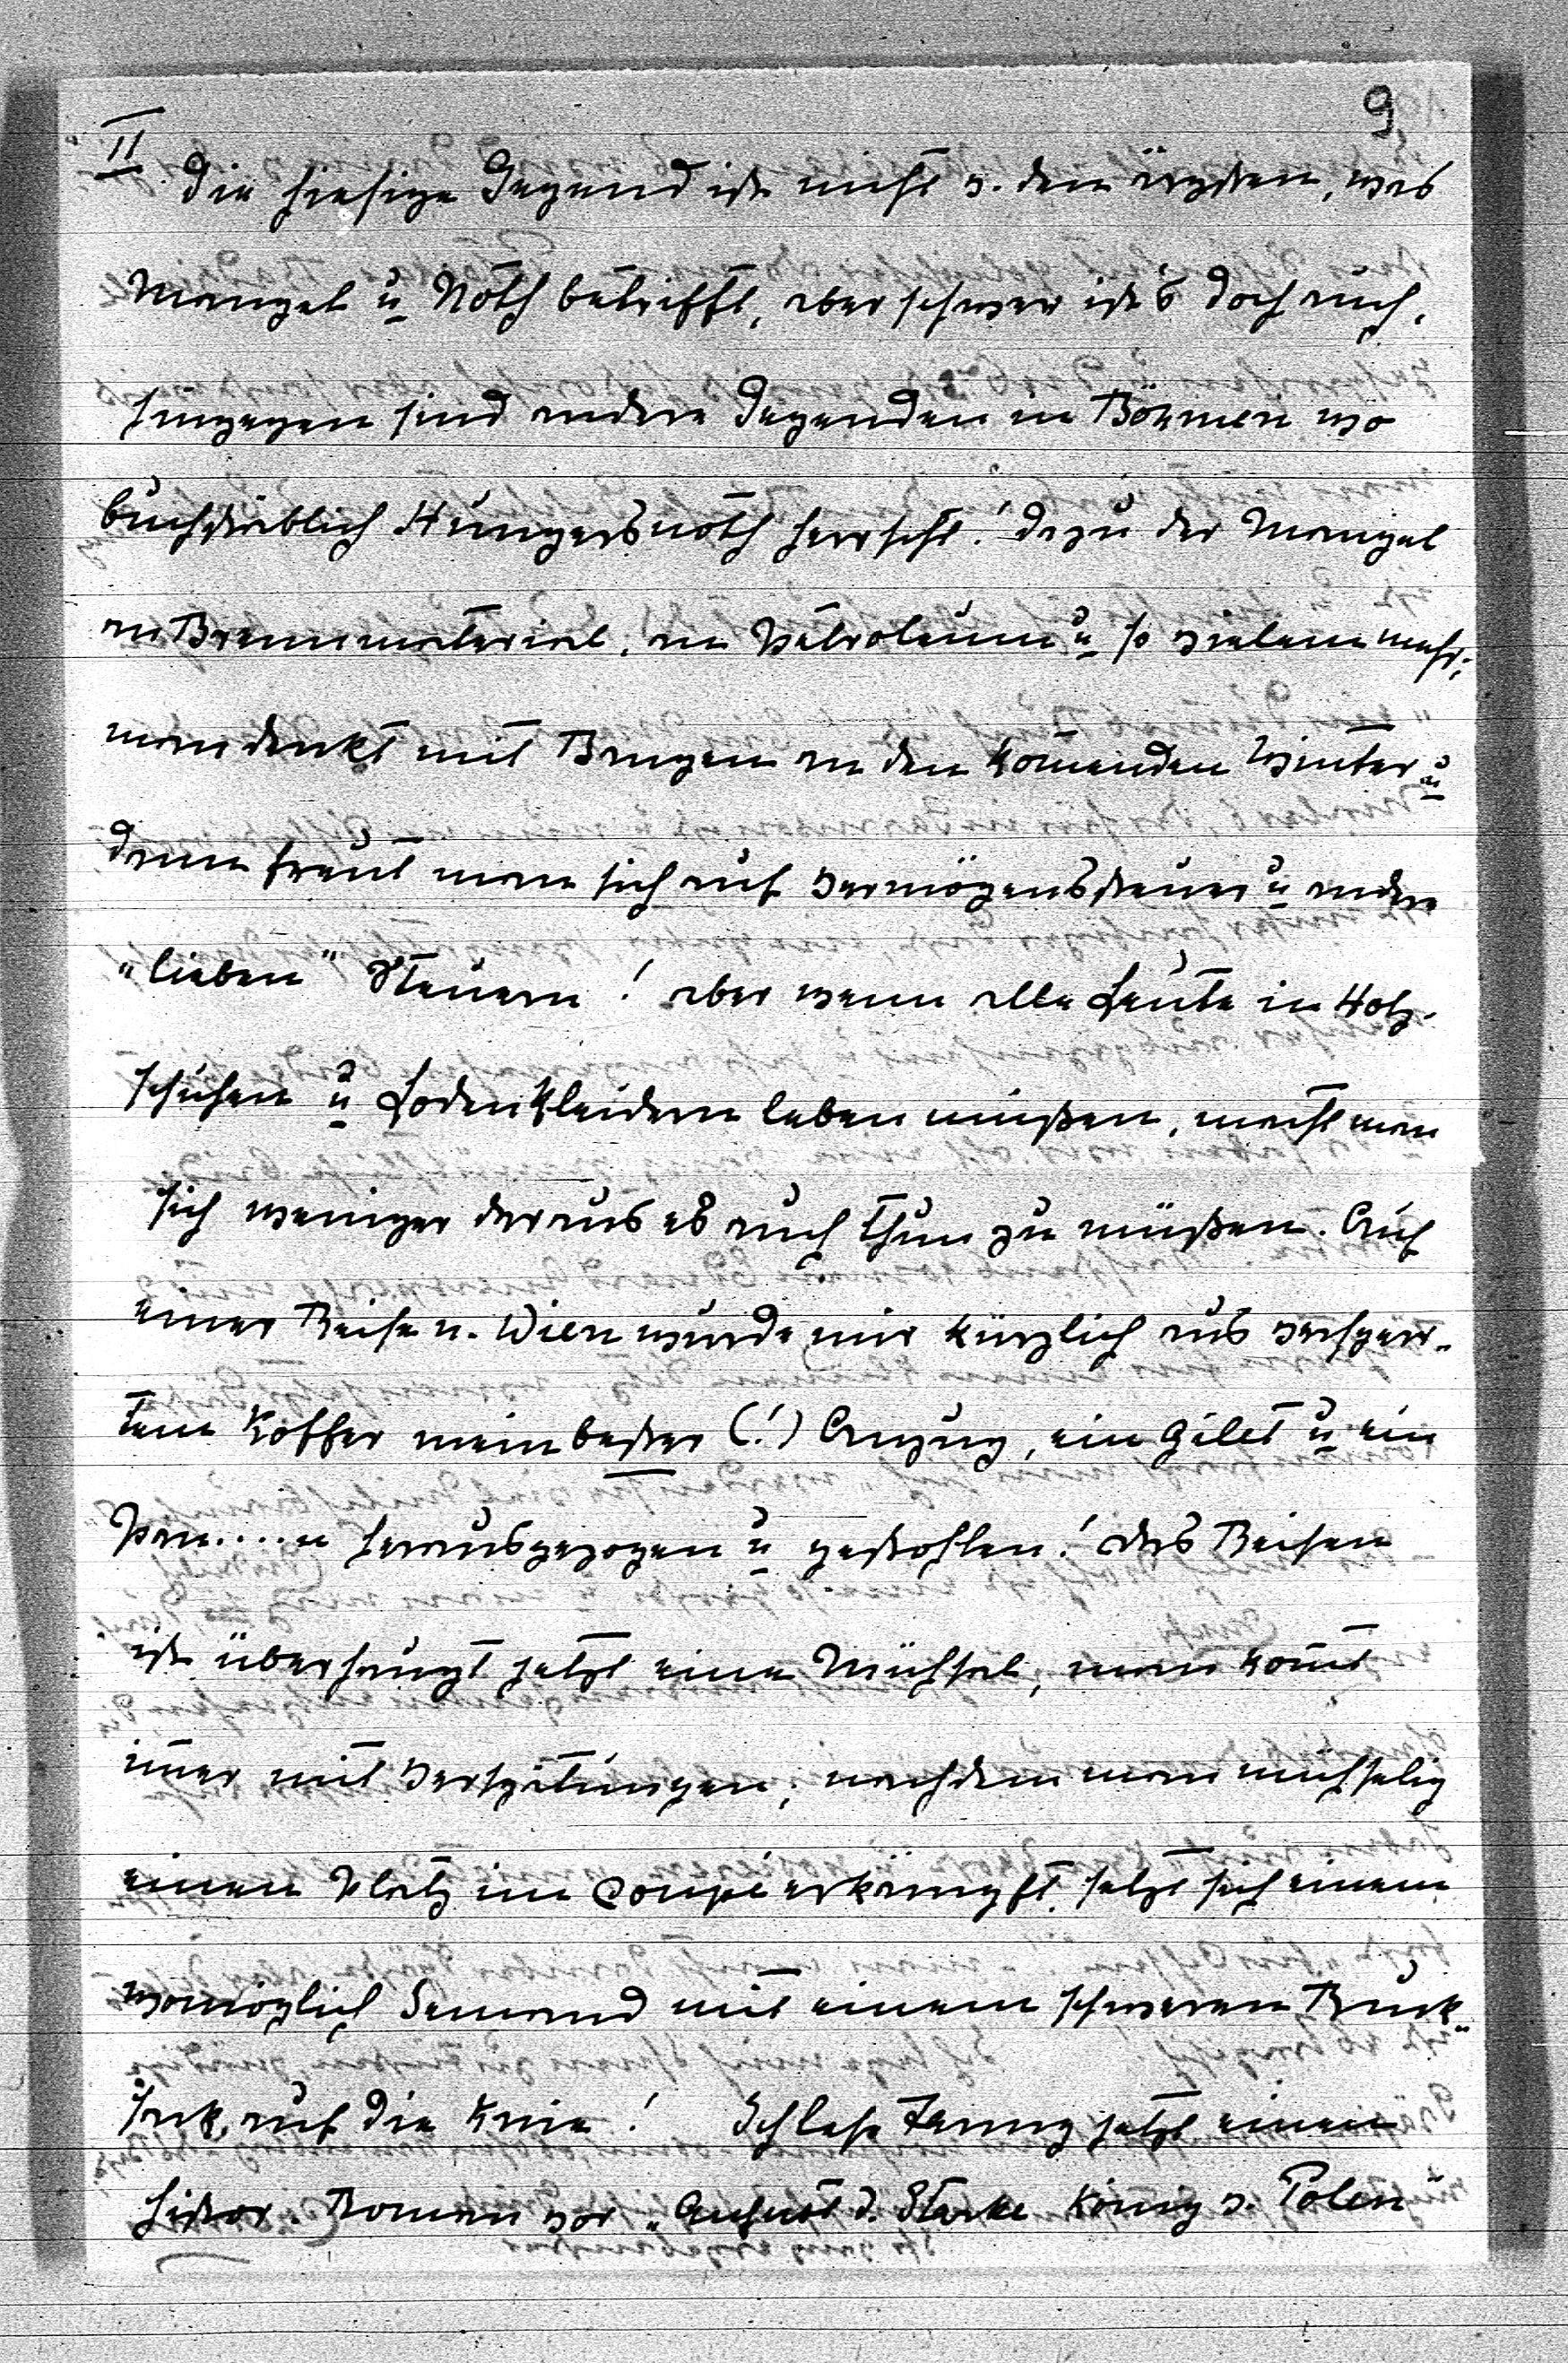 9
II
Die hiesige Gegend ist nicht v. den ärgsten, was
Mangel u Noth betrifft, aber schwer ist's doch auch,
hingegen sind andere Gegenden in Böhmen wo
buchstäblich Hungersnoth herrscht! dazu der Mangel
an Brennmaterial, an Petroleum u so vielem mehr;
man denkt mit Bangen an den komenden Winter u
dann freut man sich auf Vermögenssteuer u andere
"lieben" Steuern! aber wenn alle Leute in Holz-
schuhen u Lodenkleidern leben müßen, macht man
sich weniger daraus es auch thun zu müßen. Auf
einer Reise n. Wien wurde mir kürzlich aus versperr-
tem Koffer mein bester (!) Anzug, ein Gilet u ein
Pan....n herausgezogen u gestohlen! das Reisen
ist überhaupt jetzt eine Mühsal, man komt
imer mit Verspätungen; nachdem man mühselig
einen Platz im Coupé erkämpft, setzt sich einem
womöglich Jemand mit einem schweren Ruck-
sack auf die Knie! Ich lese Fanny jetzt einen
histor. Roman vor "August d. Starke König v. Polen"